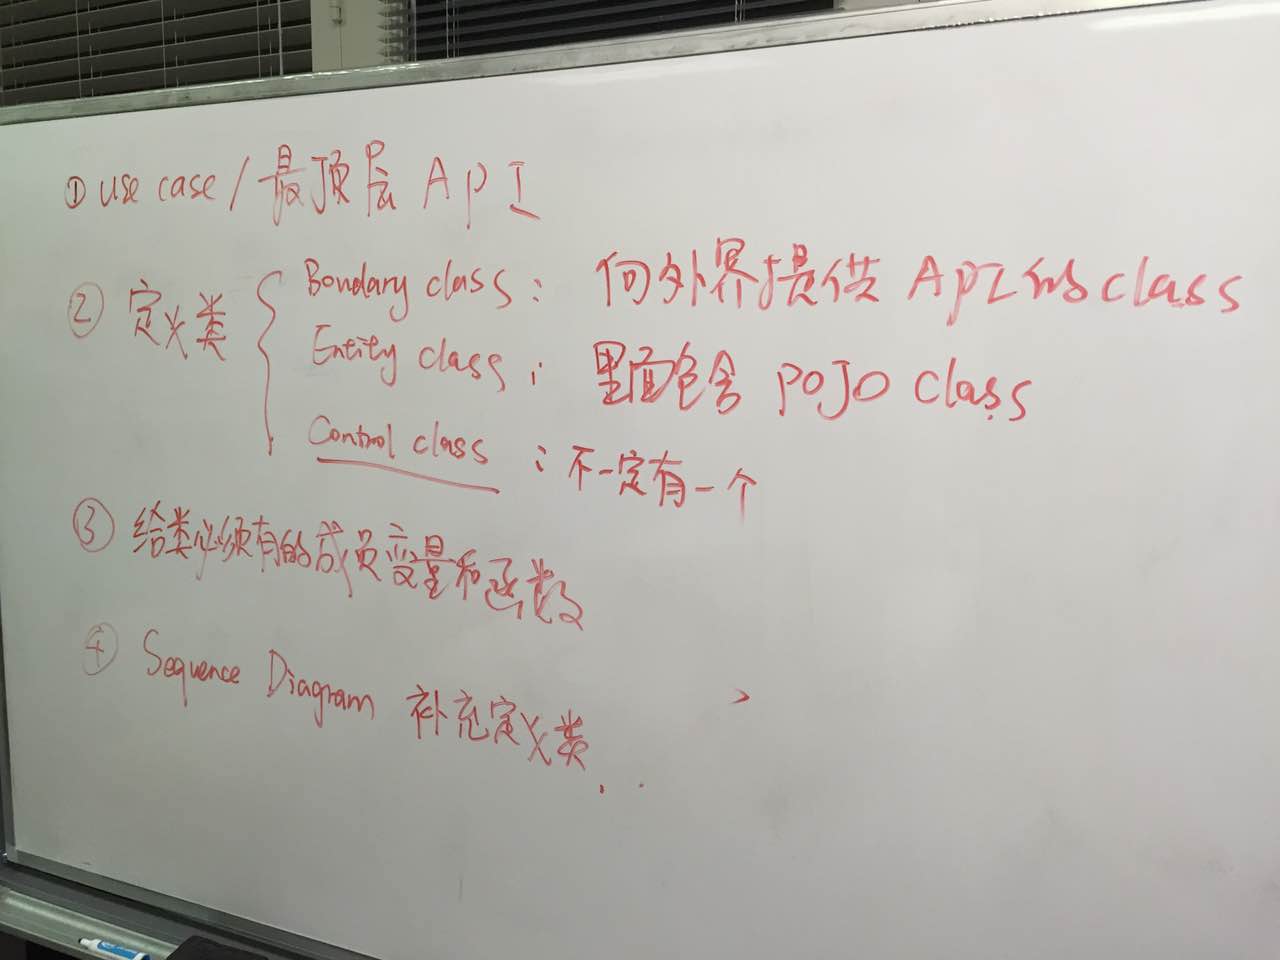 ① use case / 最顶层 API
② 定义类 { Boundary class : 向外界提供 API的class
Entity class : 里面包含 POJO class
Control class : 不一定有一个
③ 给类必须有的成员变量和函数
④ Sequence Diagram 补充定义类